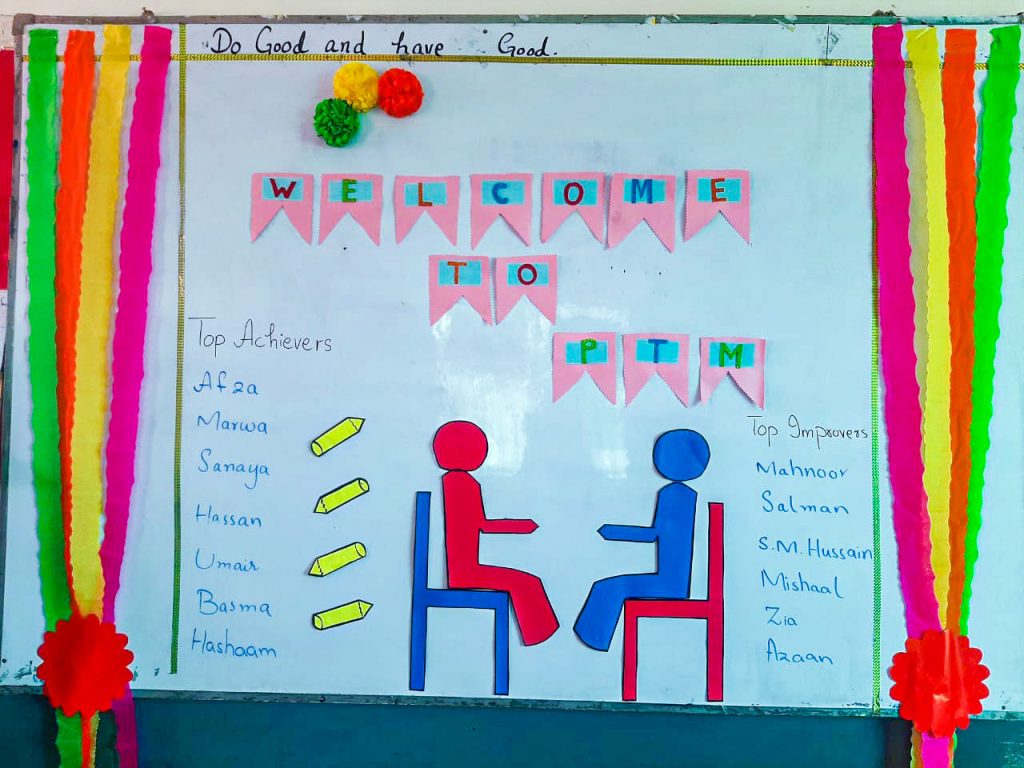 Do Good and have Good.
WELCOME
TO
PTM
Top Achievers
Afza
Marwa
Sanaya
Hassan
Umair
Basma
Hashaam
Top Improvers
Mahnoor
Salman
S.M.Hussain
Mishaal
Zia
Azaan